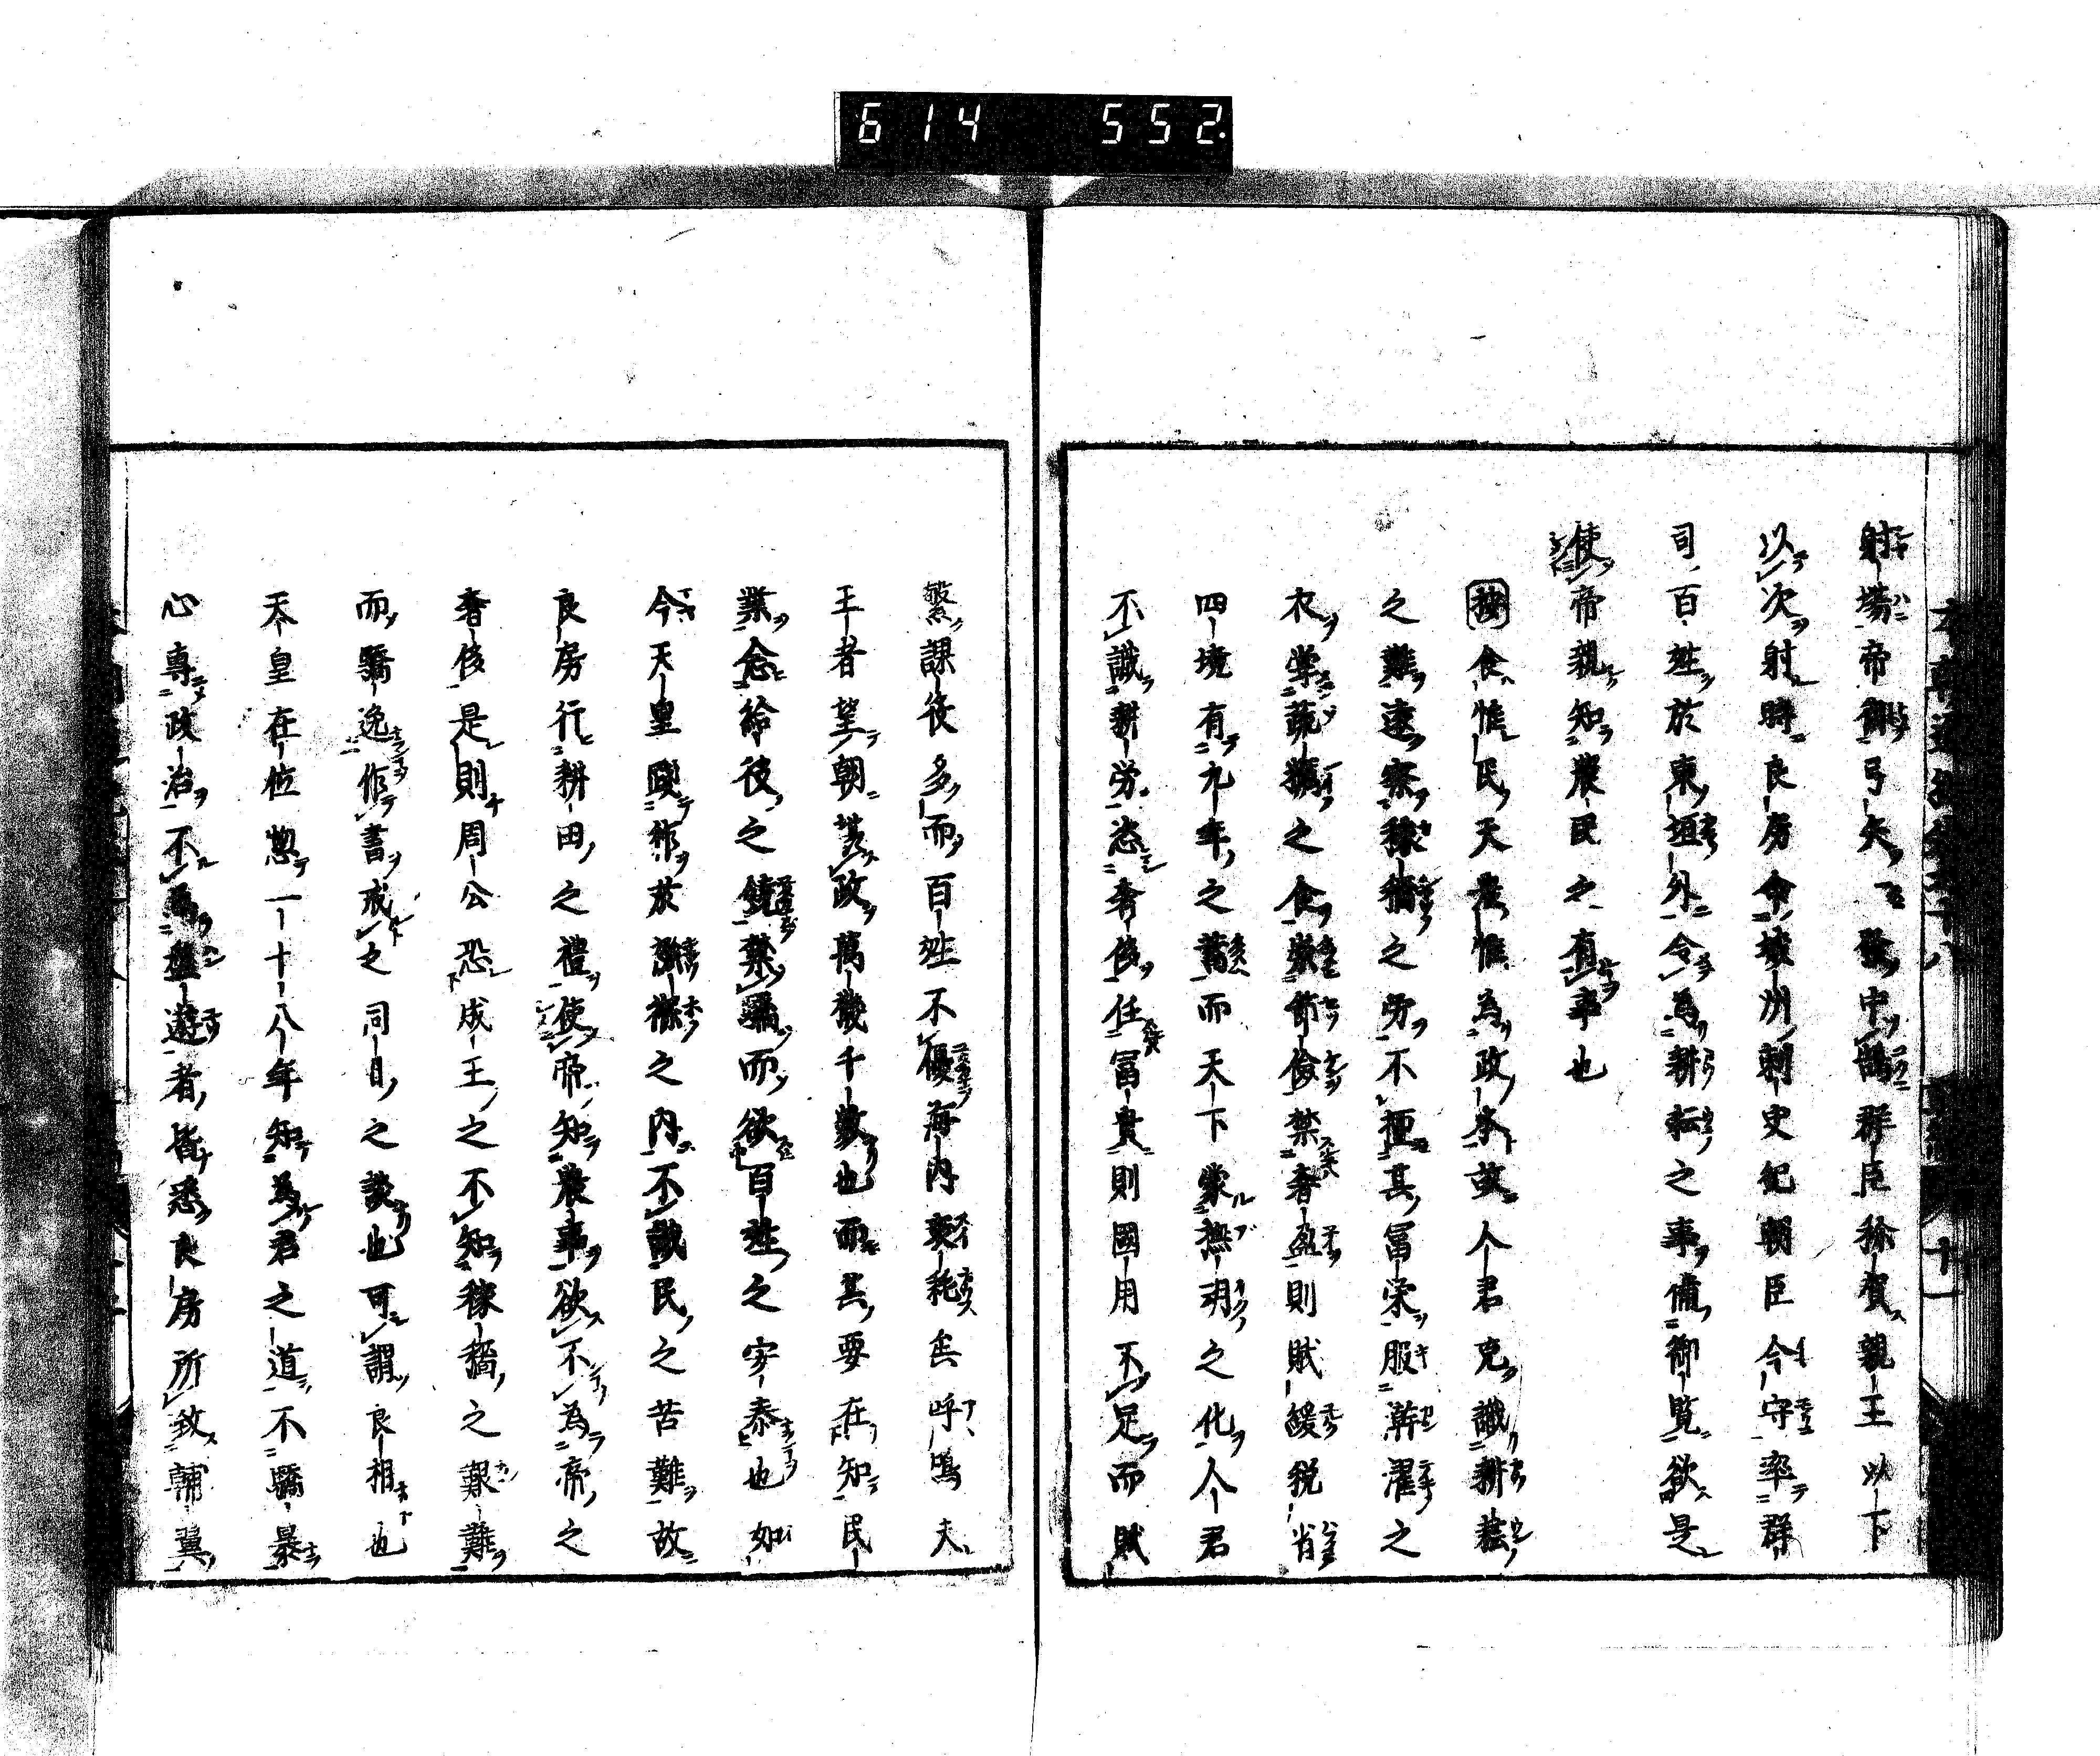 614 552.
射場帝御弓矢一發中鵠群臣猕賀親王以下
以次射時良房令攘洲刺史紀朝臣今守率群
司百姓於東垣外令為耕耘之事備御覧欲是
使帝親知農民之有事也
按食惟民天農惟為政本故人君克識耕耘
之難遠察稼穡之労不極其冨栄服澣濯之
衣嘗蔬糲之食崇節儉禁奢盈則賦緩税省
四境有九年之蓄而天下蒙撫育之化人君
不識耕労恣奢侈任冨貴則國用不足而賦
繁課役多而百姓不優海内衰耗矣呼嗚夫
王者望朝裁政萬機千數也而其要在知民
業念給彼之饒禁驕而欲百姓之安泰也如
今天皇踐祚於襁褓之内不識民之苦難故
良房行耕田之禮使帝知農事欲不為帝之
奢侈是則周公恐成王之不知稼穡之艱難
而驕逸作書戒之同日之談也可謂良相也
天皇在位惣一十八年知為君之道不驕暴
心專政治不為盤遊者皆悉良房所致輔翼